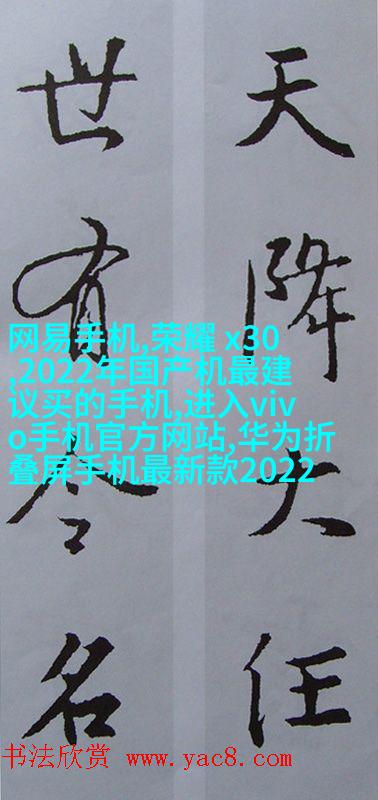 天降大任
世有令名
网易手机,荣耀 x30
,2022年国产机最建
议买的手机,进入viv
o手机官方网站,华为折
叠屏手机最新款2022
书法欣赏 www.yac8.com